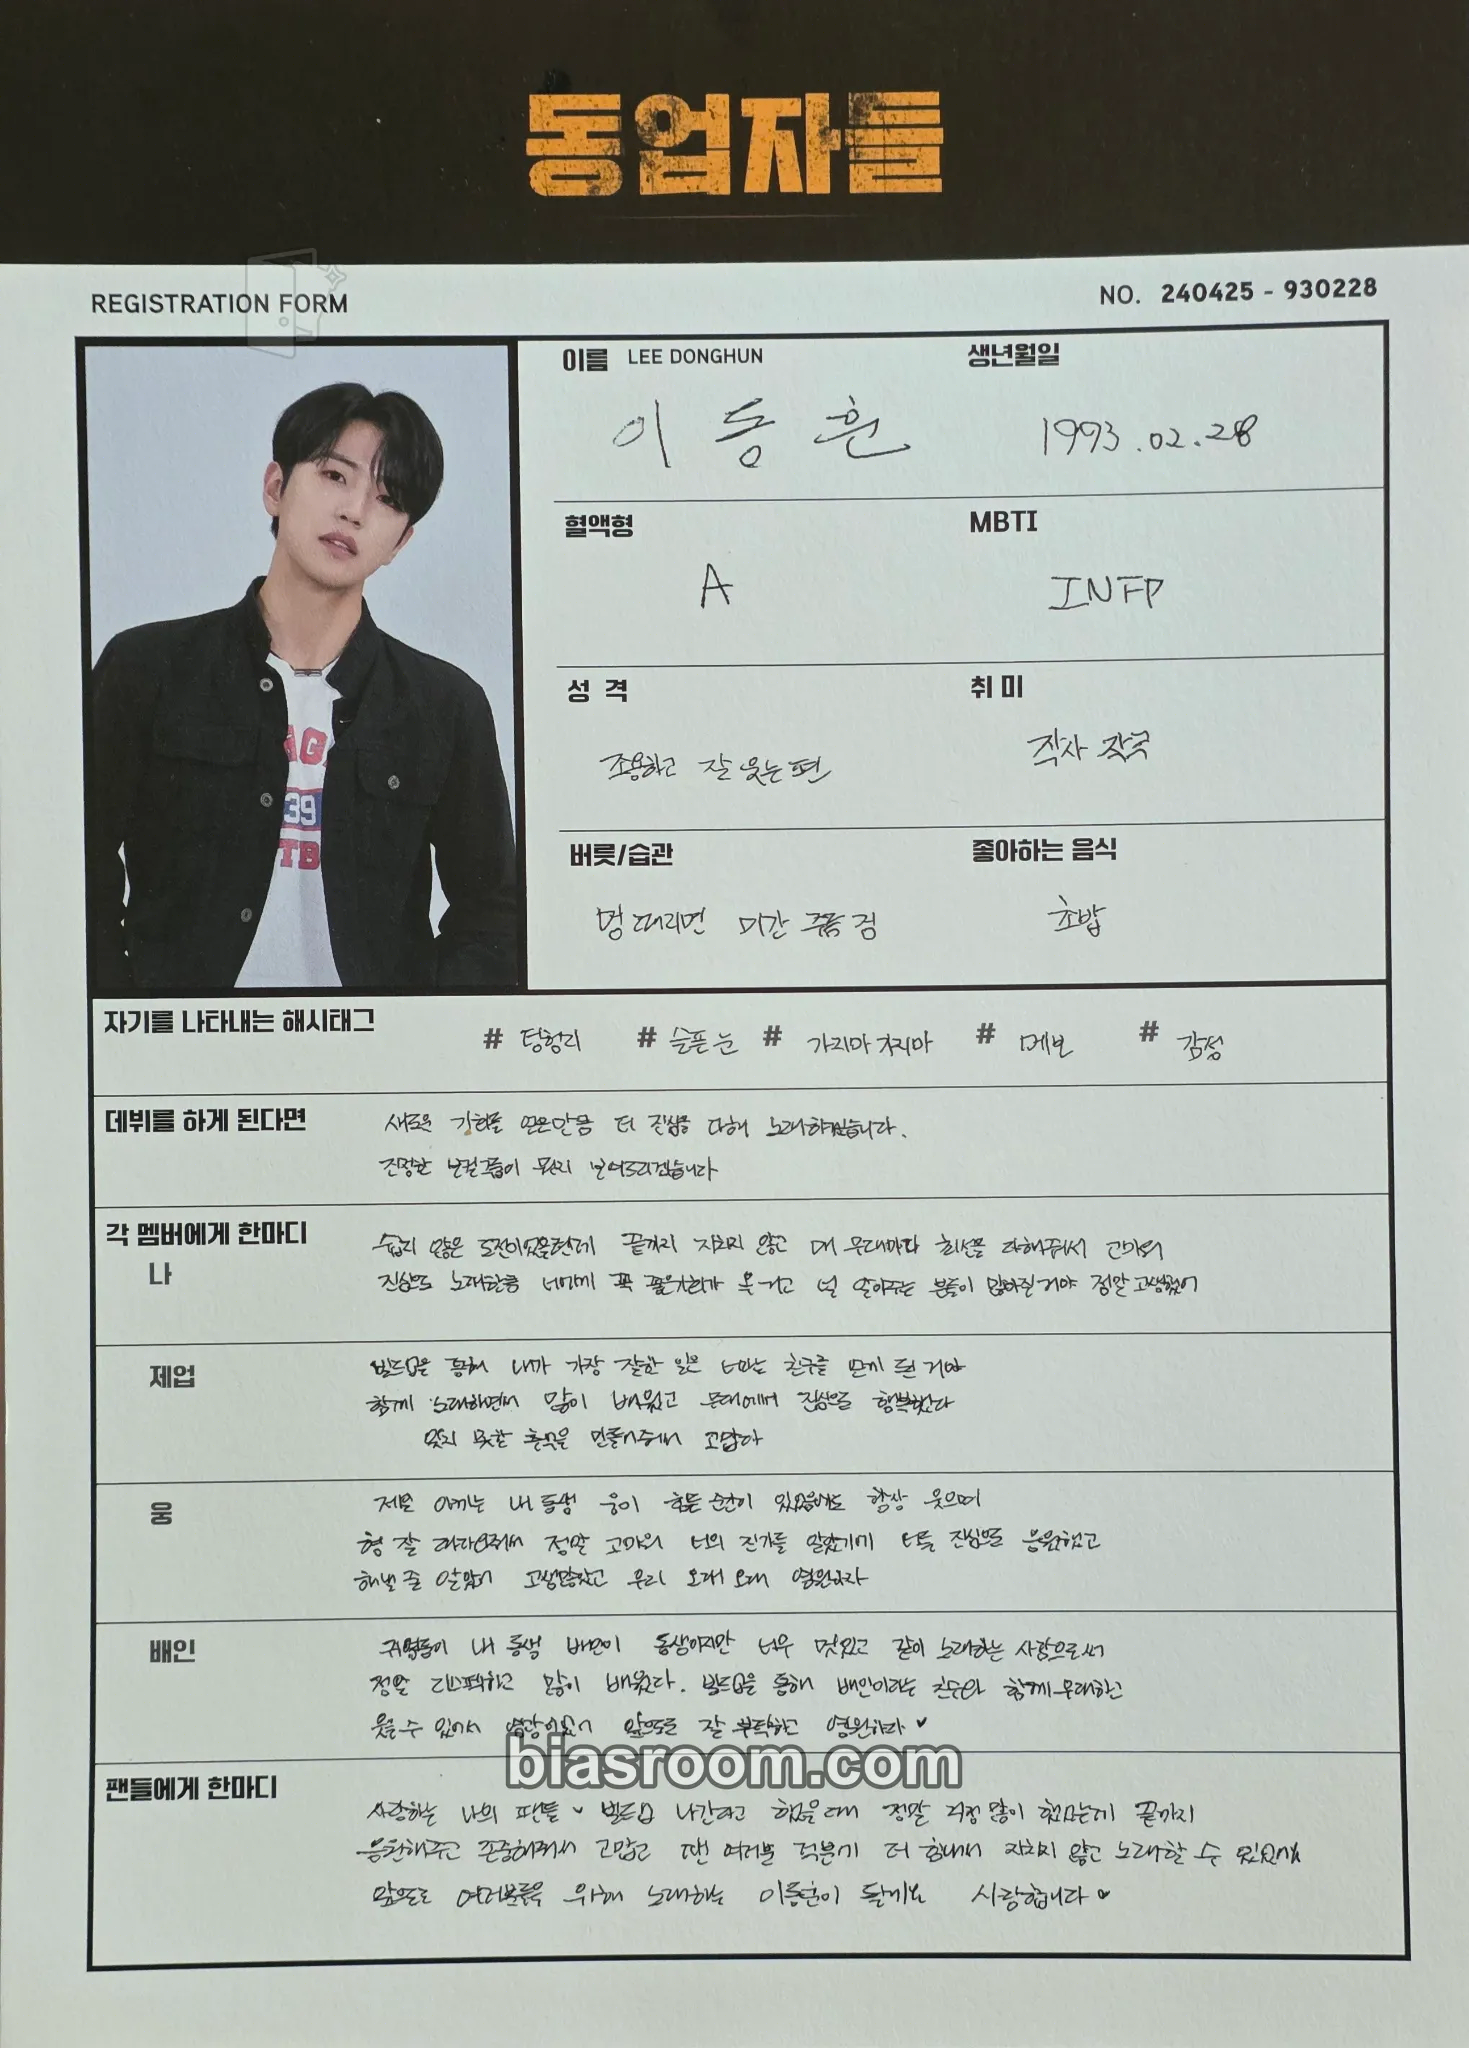 동업자들
REGISTRATION FORM
NO. 240425 - 930228
이름 LEE DONGHUN
이동훈
생년월일
1993.02.28
혈액형
A
MBTI
INFP
성격
조용하고 잘 웃는 편
취미
작사 작곡
버릇/습관
멍때리면 미간 주름 짐
좋아하는 음식
초밥
AG
39
TB
자기를 나타내는 해시태그 # 텅헝리 # 슬픈 눈 # 가지마 치지마 # 메보 # 감성
데뷔를 하게 된다면 새로운 기회를 얻은만큼 더 진심을 다해 노래하겠습니다.
진정한 보컬그룹이 뭔지 보여드리겠습니다
각 멤버에게 한마디
나
쉽지 않은 도전이었을텐데 끝까지 지치지 않고 매 무대마다 최선을 다해줘서 고마워
진심으로 노래한만큼 너에게 꼭 좋은 기회가 올 거고 널 알아주는 분들이 많아질거야 정말 고생했어
제업
빌드업을 통해 내가 가장 잘한 일은 너라는 친구를 얻게 된 거야
함께 노래하면서 많이 배웠고 무대에서 진심으로 행복했다
잊지 못할 추억을 만들어줘서 고맙다
웅
제일 아끼는 내 동생 웅이 힘든 순간이 있었음에도 항상 웃으며
형 잘 따라와줘서 정말 고마워 너의 진가를 알았기에 너를 진심으로 응원했고
해낼 줄 알았어 고생많았고 우리 오래 오래 영원하자
배인
귀염둥이 내 동생 배인이 동생이지만 너무 멋있고 같이 노래하는 사람으로서
정말 리스펙하고 많이 배웠다. 빌드업을 통해 배인이라는 친구와 함께 무대하고
웃을 수 있어서 영광이었어 앞으로 잘 부탁하고 영원하자 ♥
biasroom.com
팬들에게 한마디
사랑하는 나의 팬들 ♥ 빌드업 나간다고 했을 때 정말 걱정 많이 했었는데 끝까지
응원해주고 존중해줘서 고맙고 팬 여러분 덕분에 더 힘내서 지치지 않고 노래할 수 있었어요
앞으로도 여러분들을 위해 노래하는 이동훈이 될게요 사랑합니다 ♥